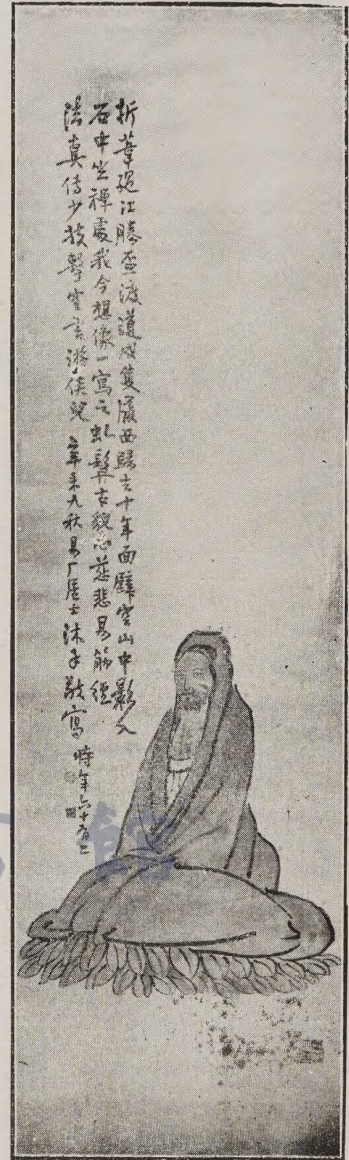 折葦絕江勝盃渡道成隻履西歸去十年面壁空山中影入
石中坐禪處我今想像一寫之虬髯古貌心慈悲易筋經
法真傳少技擊空言游俠兒 辛未九秋易厂居士沐手敬寫 時年六十有二
館